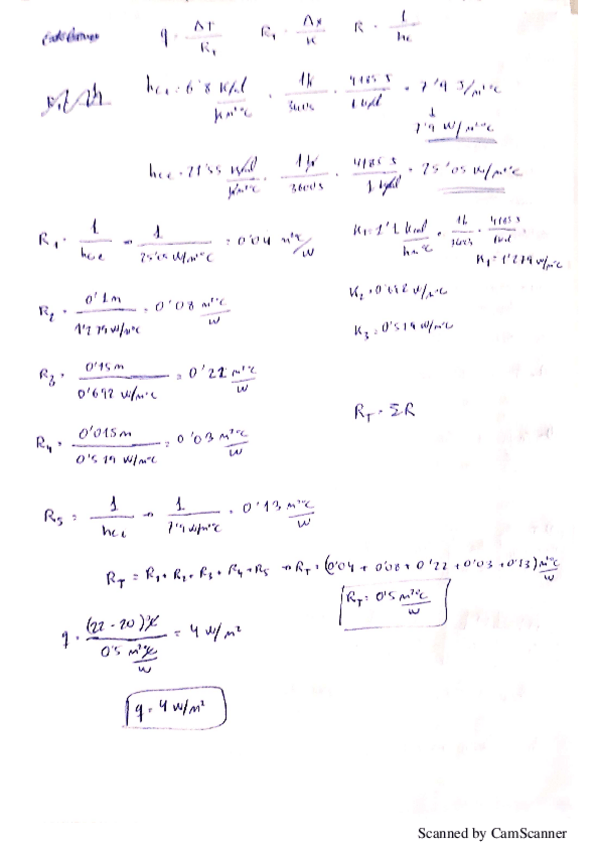 q = ΔT / R₁   R₁ = Δx / K   R = 1 / hc
hce = 6'8 Kcal / h m²°C · 1h / 3600s · 4185 J / 1 kcal = 7'9 J/m²°C
↓
7'9 W/m²°C
hce = 21'55 Kcal / h m²°C · 1h / 3600s · 4185 J / 1 kcal = 25'05 W/m²°C
R₁ = 1 / hce → 1 / 25'05 W/m²°C = 0'04 m²°C/W
K₁ = 1'1 kcal / h m°C · 1h / 3600s · 4185 J / 1 kcal =
K₁ = 1'279 W/m°C
R₂ = 0'1m / 1'279 W/m°C = 0'08 m²°C / W
K₂ = 0'692 W/m°C
K₃ = 0'519 W/m°C
R₃ = 0'15m / 0'692 W/m°C = 0'22 m²°C / W
R_T = ΣR
R₄ = 0'015m / 0'519 W/m°C = 0'03 m²°C / W
R₅ = 1 / hci → 1 / 7'9 W/m²°C = 0'13 m²°C / W
R_T = R₁ + R₂ + R₃ + R₄ + R₅ → R_T = (0'04 + 0'08 + 0'22 + 0'03 + 0'13) m²°C / W
R_T = 0'5 m²°C / W
q = (22 - 20)°C / 0'5 m²°C / W = 4 W/m²
q = 4 W/m²
Scanned by CamScanner